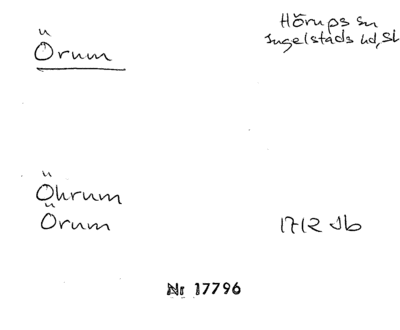 Örum
Hörups sn
Ingelstads hd, Sk
Öhrum
Örum 1712 Jb
Nr 17796